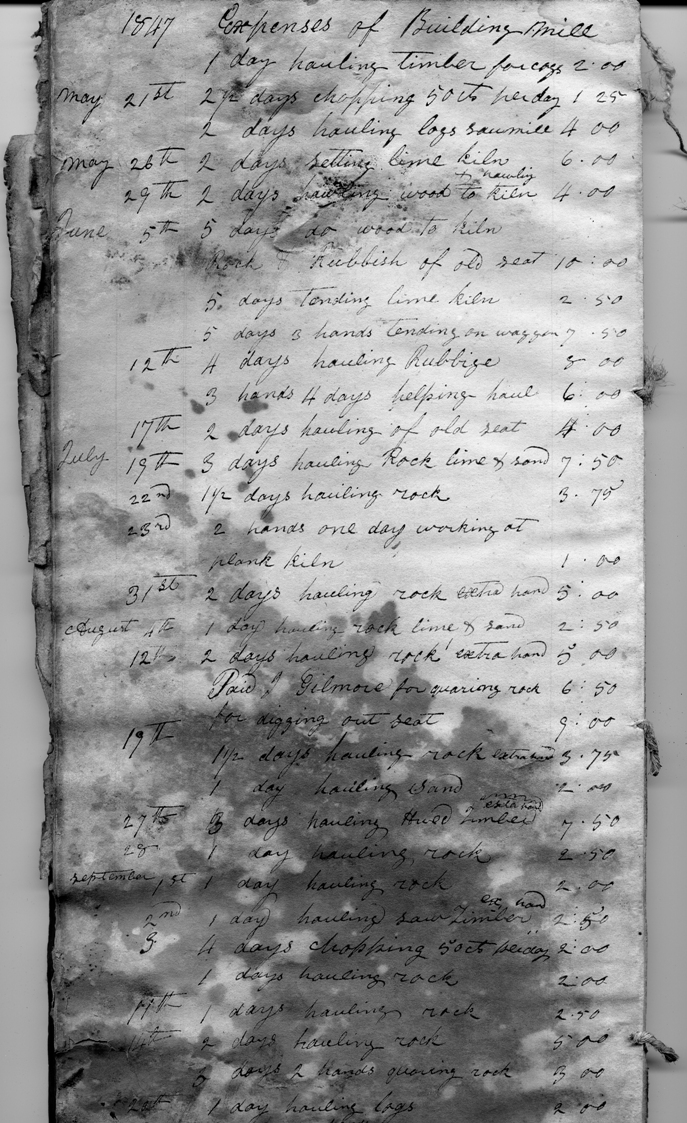 1847 Expenses of Building Mill
1 day hauling timber for cogs 2.00
May 21st 2 1/2 days chopping 50 cts per day 1 25
2 days hauling logs sawmill 4 00
May 26th 2 days setting lime kiln 6.00
+ hauling
29th 2 days hauling wood to kiln 4.00
June 5th 5 days do wood to kiln
Rock & Rubbish of old seat 10:00
5 days tending lime kiln 2.50
5 days 3 hands tending on waggon 7.50
12th 4 days hauling Rubbige 8 00
3 hands 4 days helping haul 6:00
17th 2 days hauling of old seat 4:00
July 19th 3 days hauling Rock lime & sand 7:50
22nd 1 1/2 days hauling rock 3.75
23rd 2 hands one day working at
plank kiln 1.00
31st 2 days hauling rock extra hand 5:00
August 4th 1 day hauling rock lime & sand 2:50
12th 2 days hauling rock extra hand 5 00
Paid J Gilmore for quaring rock 6:50
for digging out seat 9:00
19th 1 1/2 days hauling rock extra hand 3.75
1 day hauling sand 2.00
extra hand
27th 3 days hauling Hued timber 7.50
28 1 day hauling rock 2.50
September 1st 1 day hauling rock 2.00
ext hand
2nd 1 day hauling saw timber 2:50
3 4 days chopping 50 ct per day 2:00
1 days hauling rock 2:00
11th 1 days hauling rock 2.50
14th 2 days hauling rock 5 00
days 2 hands quaring rock 3.00
1 day hauling logs 2 00